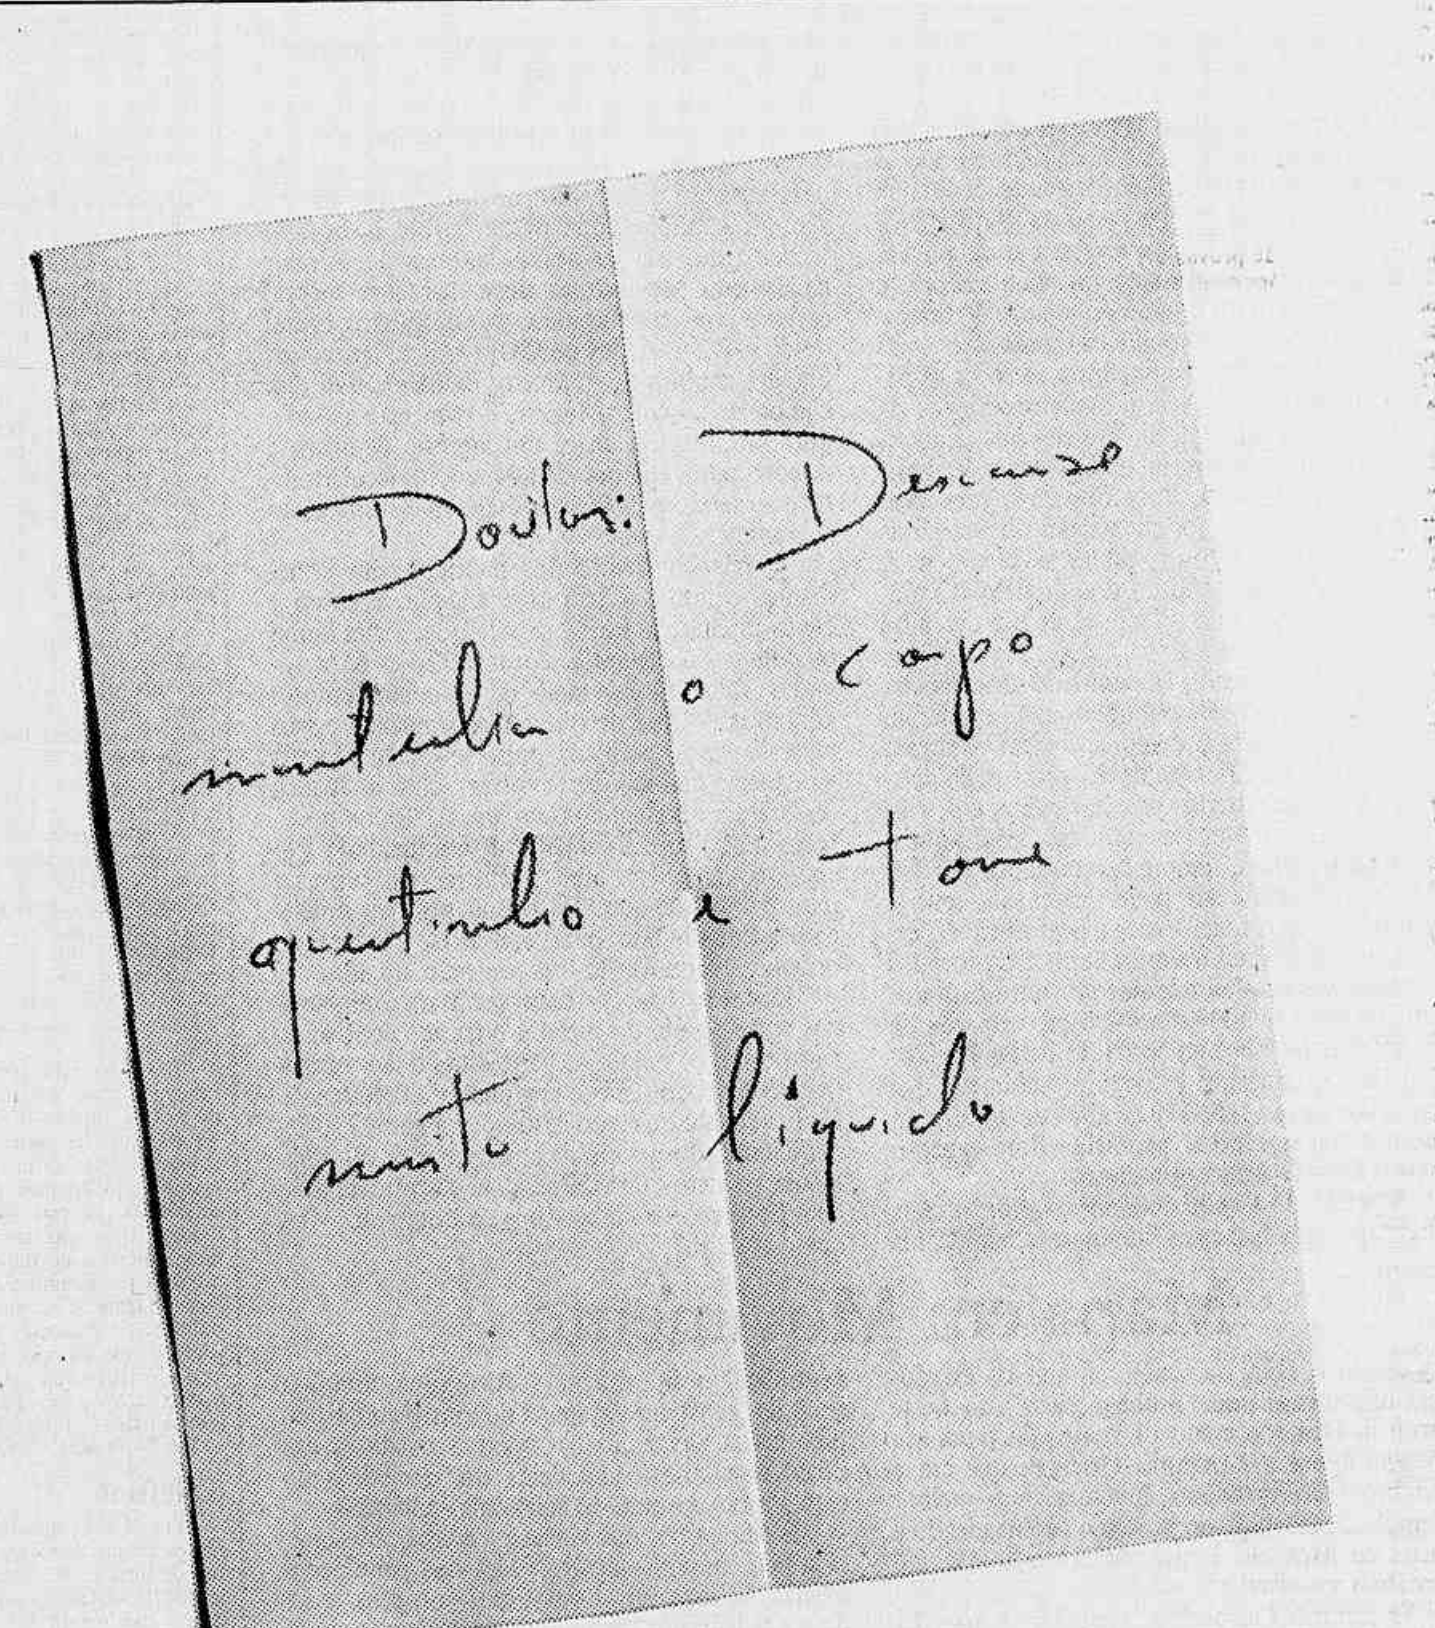 Doutor: Descanse
mantenha o corpo
quentinho e tome
muito líquido